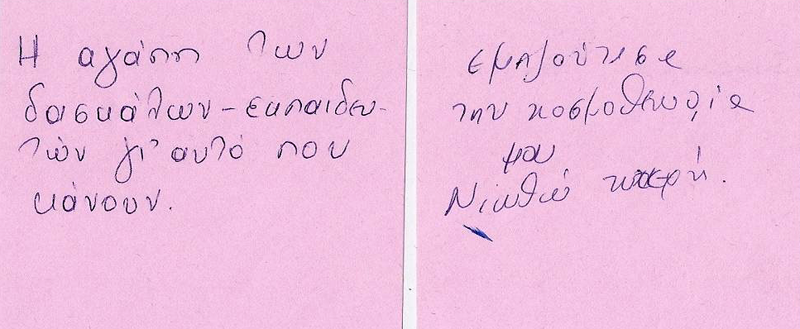 Η αγάπη των
δασκάλων - εκπαιδευ-
τών γι' αυτό που
κάνουν.
εμπλούτισε
την κοσμοθεωρία
μου
Νιωθώ